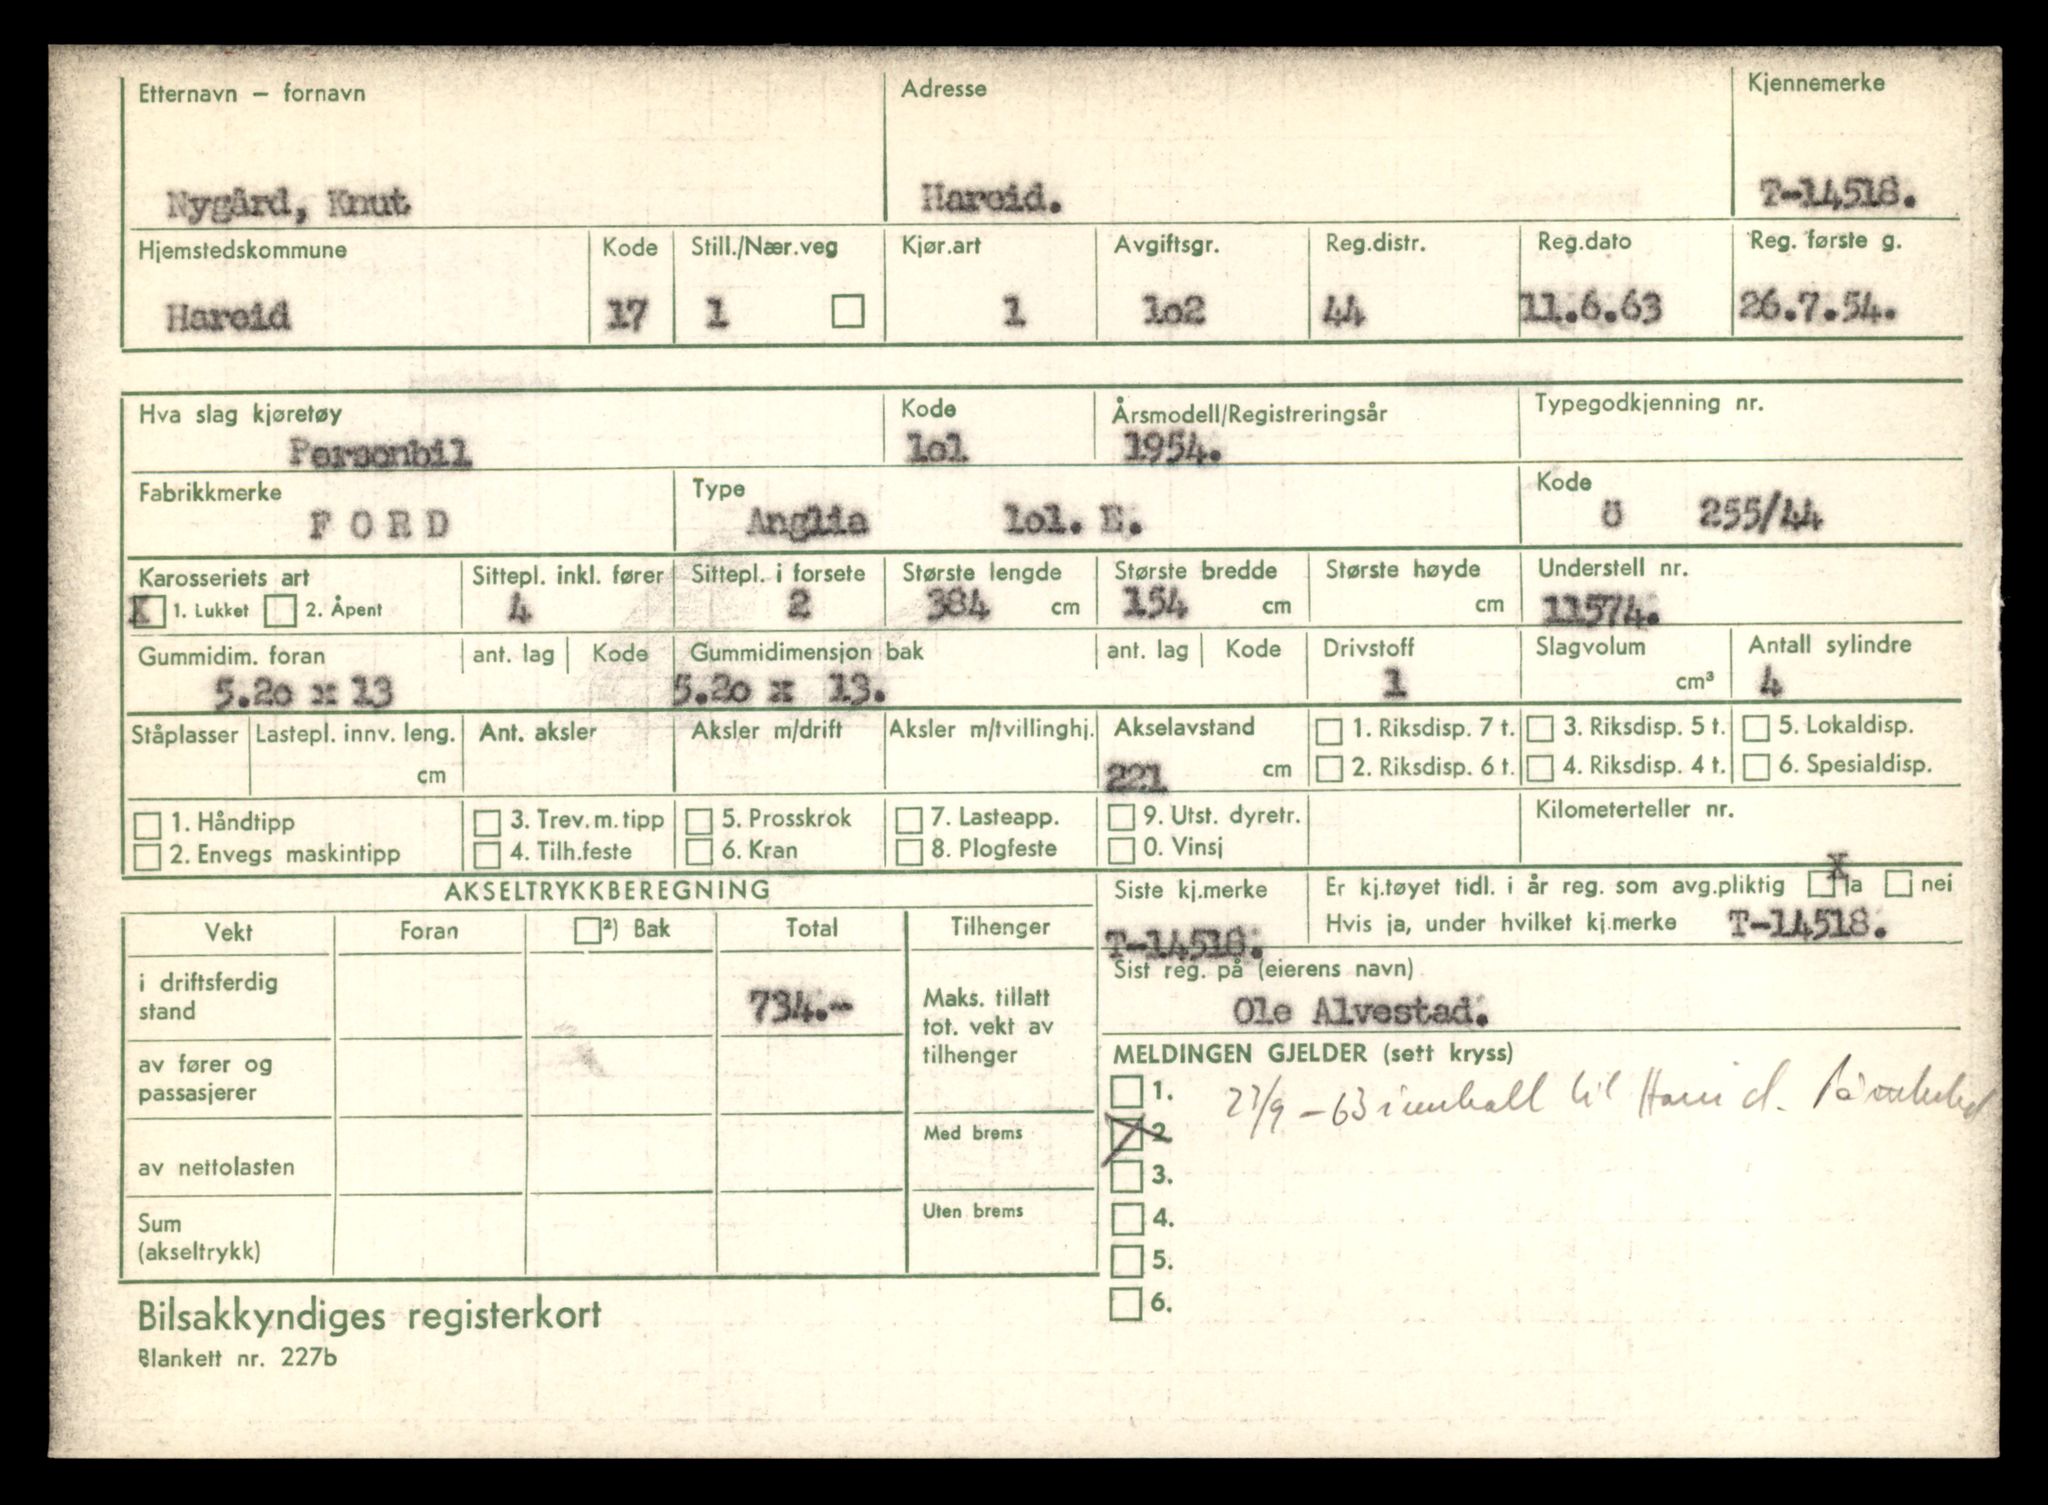 Etternavn – fornavn Adresse Kjennemerke
Nygård, Knut Hareid. T-14518.
Hjemstedskommune Kode Still./Nær.veg Kjør.art Avgiftsgr. Reg.distr. Reg.dato Reg. første g.
Hareid 17 1 1 1o2 44 11.6.63 26.7.54.
Hva slag kjøretøy Kode Årsmodell/Registreringsår Typegodkjenning nr.
Personbil lol 1954.
Fabrikkmerke Type Kode
F O R D Anglia lol. E. ö 255/44
Karosseriets art Sittepl. inkl. fører Sittepl. i forsete Største lengde Største bredde Største høyde Understell nr.
X 1. Lukket 2. Åpent 4 2 384 cm 154 cm cm 11574.
Gummidim. foran ant. lag Kode Gummidimensjon bak ant. lag Kode Drivstoff Slagvolum Antall sylindre
5.2o x 13 5.2o x 13. 1 cm³ 4
Ståplasser Lastepl. innv. leng. Ant. aksler Aksler m/drift Aksler m/tvillinghj. Akselavstand 1. Riksdisp. 7 t. 3. Riksdisp. 5 t. 5. Lokaldisp.
cm 221 cm 2. Riksdisp. 6 t. 4. Riksdisp. 4 t. 6. Spesialdisp.
1. Håndtipp 3. Trev. m. tipp 5. Prosskrok 7. Lasteapp. 9. Utst. dyretr. Kilometerteller nr.
2. Envegs maskintipp 4. Tilh.feste 6. Kran 8. Plogfeste 0. Vinsj
AKSELTRYKKBEREGNING
Siste kj.merke Er kj.tøyet tidl. i år reg. som avg.pliktig X ja nei
T-14518. Hvis ja, under hvilket kj.merke T-14518.
Vekt Foran ²) Bak Total Tilhenger
Sist reg. på (eierens navn)
Ole Alvestad.
i driftsferdig
stand
734.-
Maks. tillatt
tot. vekt av
tilhenger
av fører og
passasjerer
Med brems
av nettolasten
Uten brems
Sum
(akseltrykk)
MELDINGEN GJELDER (sett kryss)
1. 27/9 -63 innkalt til Hareid.
2.
3.
4.
5.
6.
Bilsakkyndiges registerkort
Blankett nr. 227b